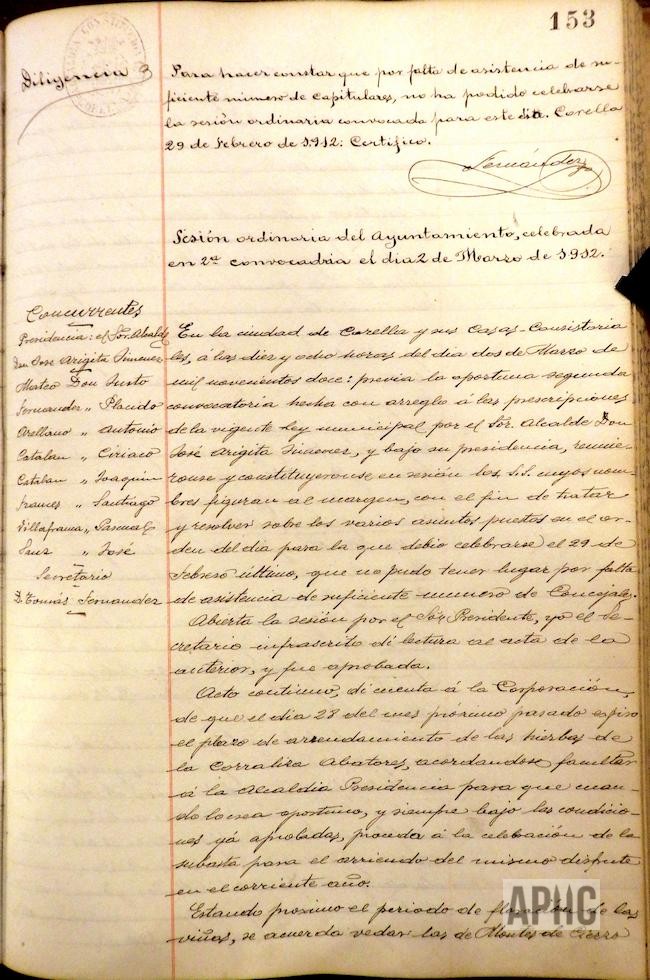 153
Diligencia
Para hacer constar que por falta de asistencia de su-
ficiente número de capitulares, no ha podido celebrarse
la sesión ordinaria convocada para este dia. Corella
29 de Febrero de 1.912: Certifico.
Fernández
Sesión ordinaria del Ayuntamiento, celebrada
en 2ª convocadria el dia 2 de Marzo de 1912.
Concurrentes
Presidencia: el Sor. Alcalde
Don José Arigita Jimenez
Mateo Don Justo
Fernandez " Placido
Arellano " Antonio
Catalan " Ciriaco
Catalan " Joaquin
" Santiago
Villafranca " Pascual
Sanz " José
Secretario
D. Tomás Fernandez
En la ciudad de Corella y sus Casas-Consistoria
les, á las diez y ocho horas del dia dos de Marzo de
mil novecientos doce: previa la oportuna segunda
convocatoria hecha con arreglo á las prescripciones
de la vigente Ley municipal por el Sor. Alcalde Don
José Arigita Jimenez, y bajo su presidencia, reunie-
ronse y constituyeronse en sesión los S.S. cuyos nom-
bres figuran al margen, con el fin de tratar
y resolver sobre los varios asuntos puestos en el or-
den del dia para la que debió celebrarse el 29 de
Febrero último, que no pudo tener lugar por falta
de asistencia de suficiente numero de Concejales.
Abierta la sesión por el Sor. Presidente, yo el Se-
cretario infrascrito di lectura al acta de la
anterior, y fue aprobada.
Acto continuo, di cuenta á la Corporación,
de que el dia 28 del mes próximo pasado espiró
el plazo de arrendamiento de las hierbas de
la Corraliza Abatores, acordandose facultar
á la Alcaldia Presidencia para que cuan-
do lo crea oportuno, y siempre bajo las condicio-
nes yá aprobadas, proceda á la celebración de la
subasta para el arriendo del mismo disfrute
en el corriente año.
Estando proximo el periodo de floración de las
viñas, se acuerda vedar las de Montes de Cierzo
APHC